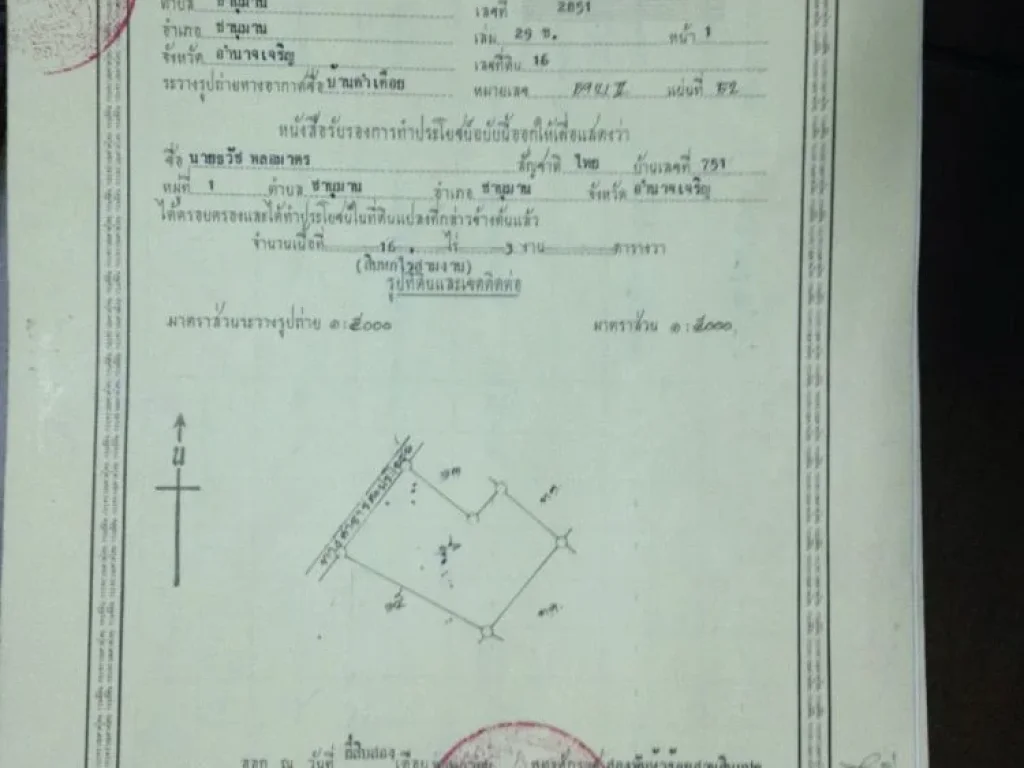 ตำบล ชานุมาน เลขที่ 2851
อำเภอ ชานุมาน เล่ม 29 ข. หน้า 1
จังหวัด อำนาจเจริญ เลขที่ดิน 16
ระวางรูปถ่ายทางอากาศชื่อ บ้านคำเดือย หมายเลข แผ่นที่ 52
หนังสือรับรองการทำประโยชน์ฉบับนี้ออกให้เพื่อแสดงว่า
ชื่อ นายธวัช พลอมาตร สัญชาติ ไทย บ้านเลขที่ 751
หมู่ที่ 1 ตำบล ชานุมาน อำเภอ ชานุมาน จังหวัด อำนาจเจริญ
ได้ครอบครองและได้ทำประโยชน์ในที่ดินแปลงที่กล่าวข้างต้นแล้ว
จำนวนเนื้อที่ 16 ไร่ 3 งาน ตารางวา
(สิบหกไร่สามงาน)
รูปที่ดินและเขตติดต่อ
มาตราส่วนระวางรูปถ่าย ๑:๕๐๐๐ มาตราส่วน ๑:๕๐๐๐
น
๑๓
ค.ค.
ทางสาธารณประโยชน์
๑๕
ค.ค.
ออก ณ วันที่ ยี่สิบสอง เดือน